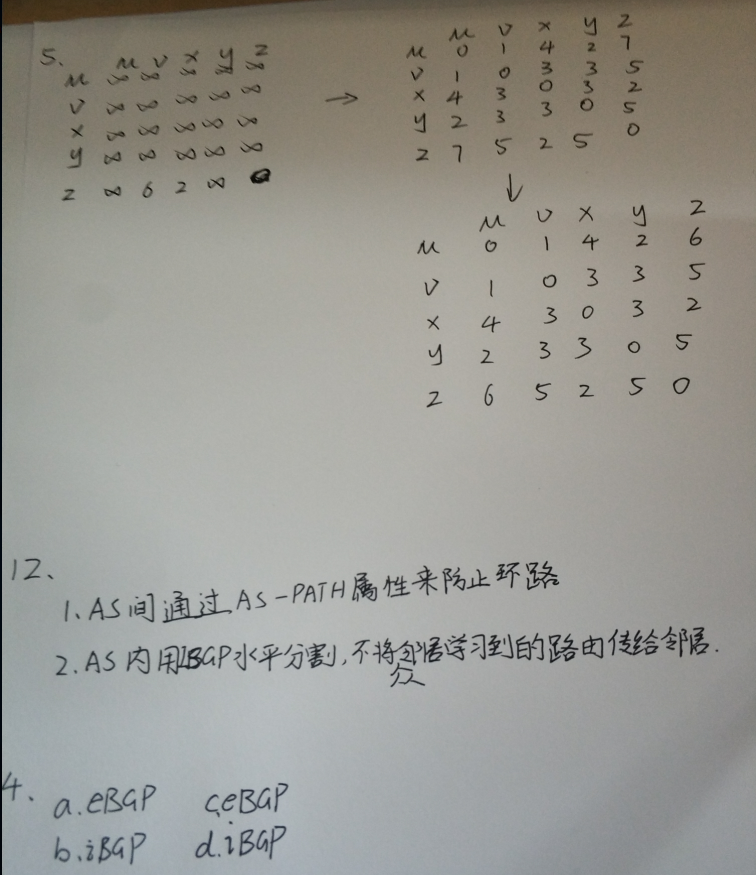 5.
μ ν x y z
μ ∞ ∞ ∞ ∞ ∞
ν ∞ ∞ ∞ ∞ ∞
x ∞ ∞ ∞ ∞ ∞
y ∞ ∞ ∞ ∞ ∞
z ∞ 6 2 ∞ 0
→
μ ν x y z
μ 0 1 4 2 7
ν 1 0 3 3 5
x 4 3 0 3 2
y 2 3 3 0 5
z 7 5 2 5 0
↓
μ ν x y z
μ 0 1 4 2 6
ν 1 0 3 3 5
x 4 3 0 3 2
y 2 3 3 0 5
z 6 5 2 5 0
12、
1. AS间通过AS-PATH属性来防止环路
2. AS内用IBGP水平分割,不将从邻居学习到的路由传给邻居.
4、
a. eBGP c. eBGP
b. iBGP d. iBGP